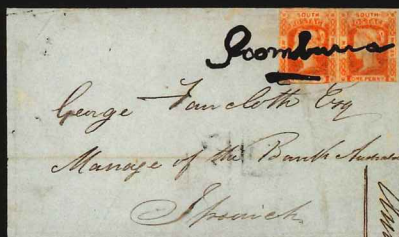 SOUTH SOUTH
Goomburra
George Faircloth Esq
Manager of the Bank Australa
Ipswich